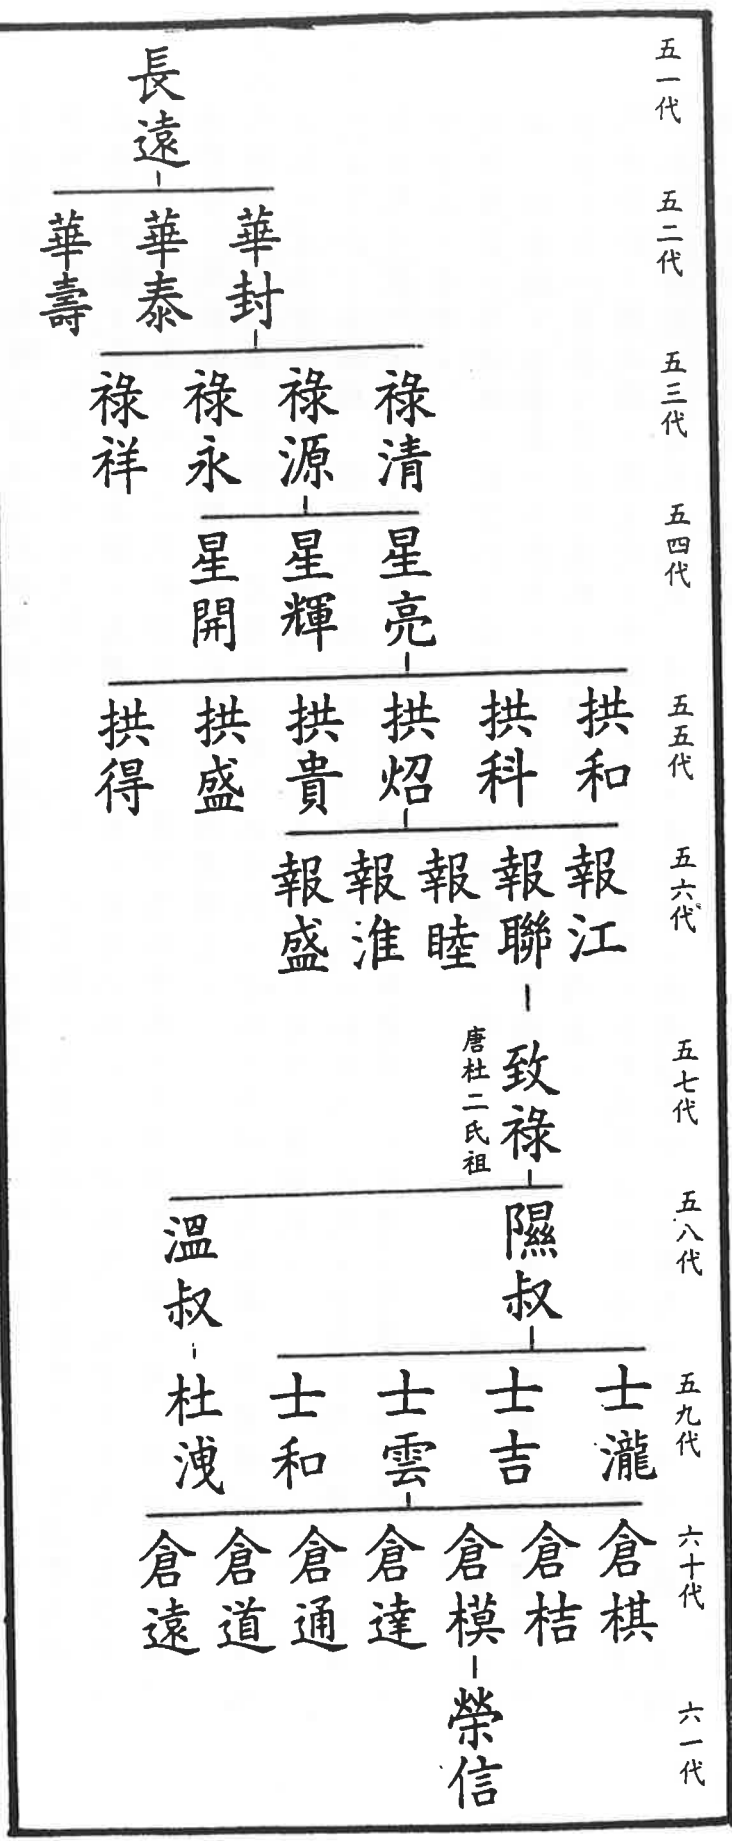 五一代
長遠
五二代
華封
華泰
華壽
五三代
祿清
祿源
祿永
祿祥
五四代
星亮
星輝
星開
五五代
拱和
拱科
拱炤
拱貴
拱盛
拱得
五六代
報江
報聯
報睦
報淮
報盛
五七代
致祿
唐杜二氏祖
五八代
隰叔
溫叔
五九代
士瀧
士吉
士雲
士和
杜洩
六十代
倉棋
倉桔
倉模
倉達
倉通
倉道
倉遠
六一代
榮信